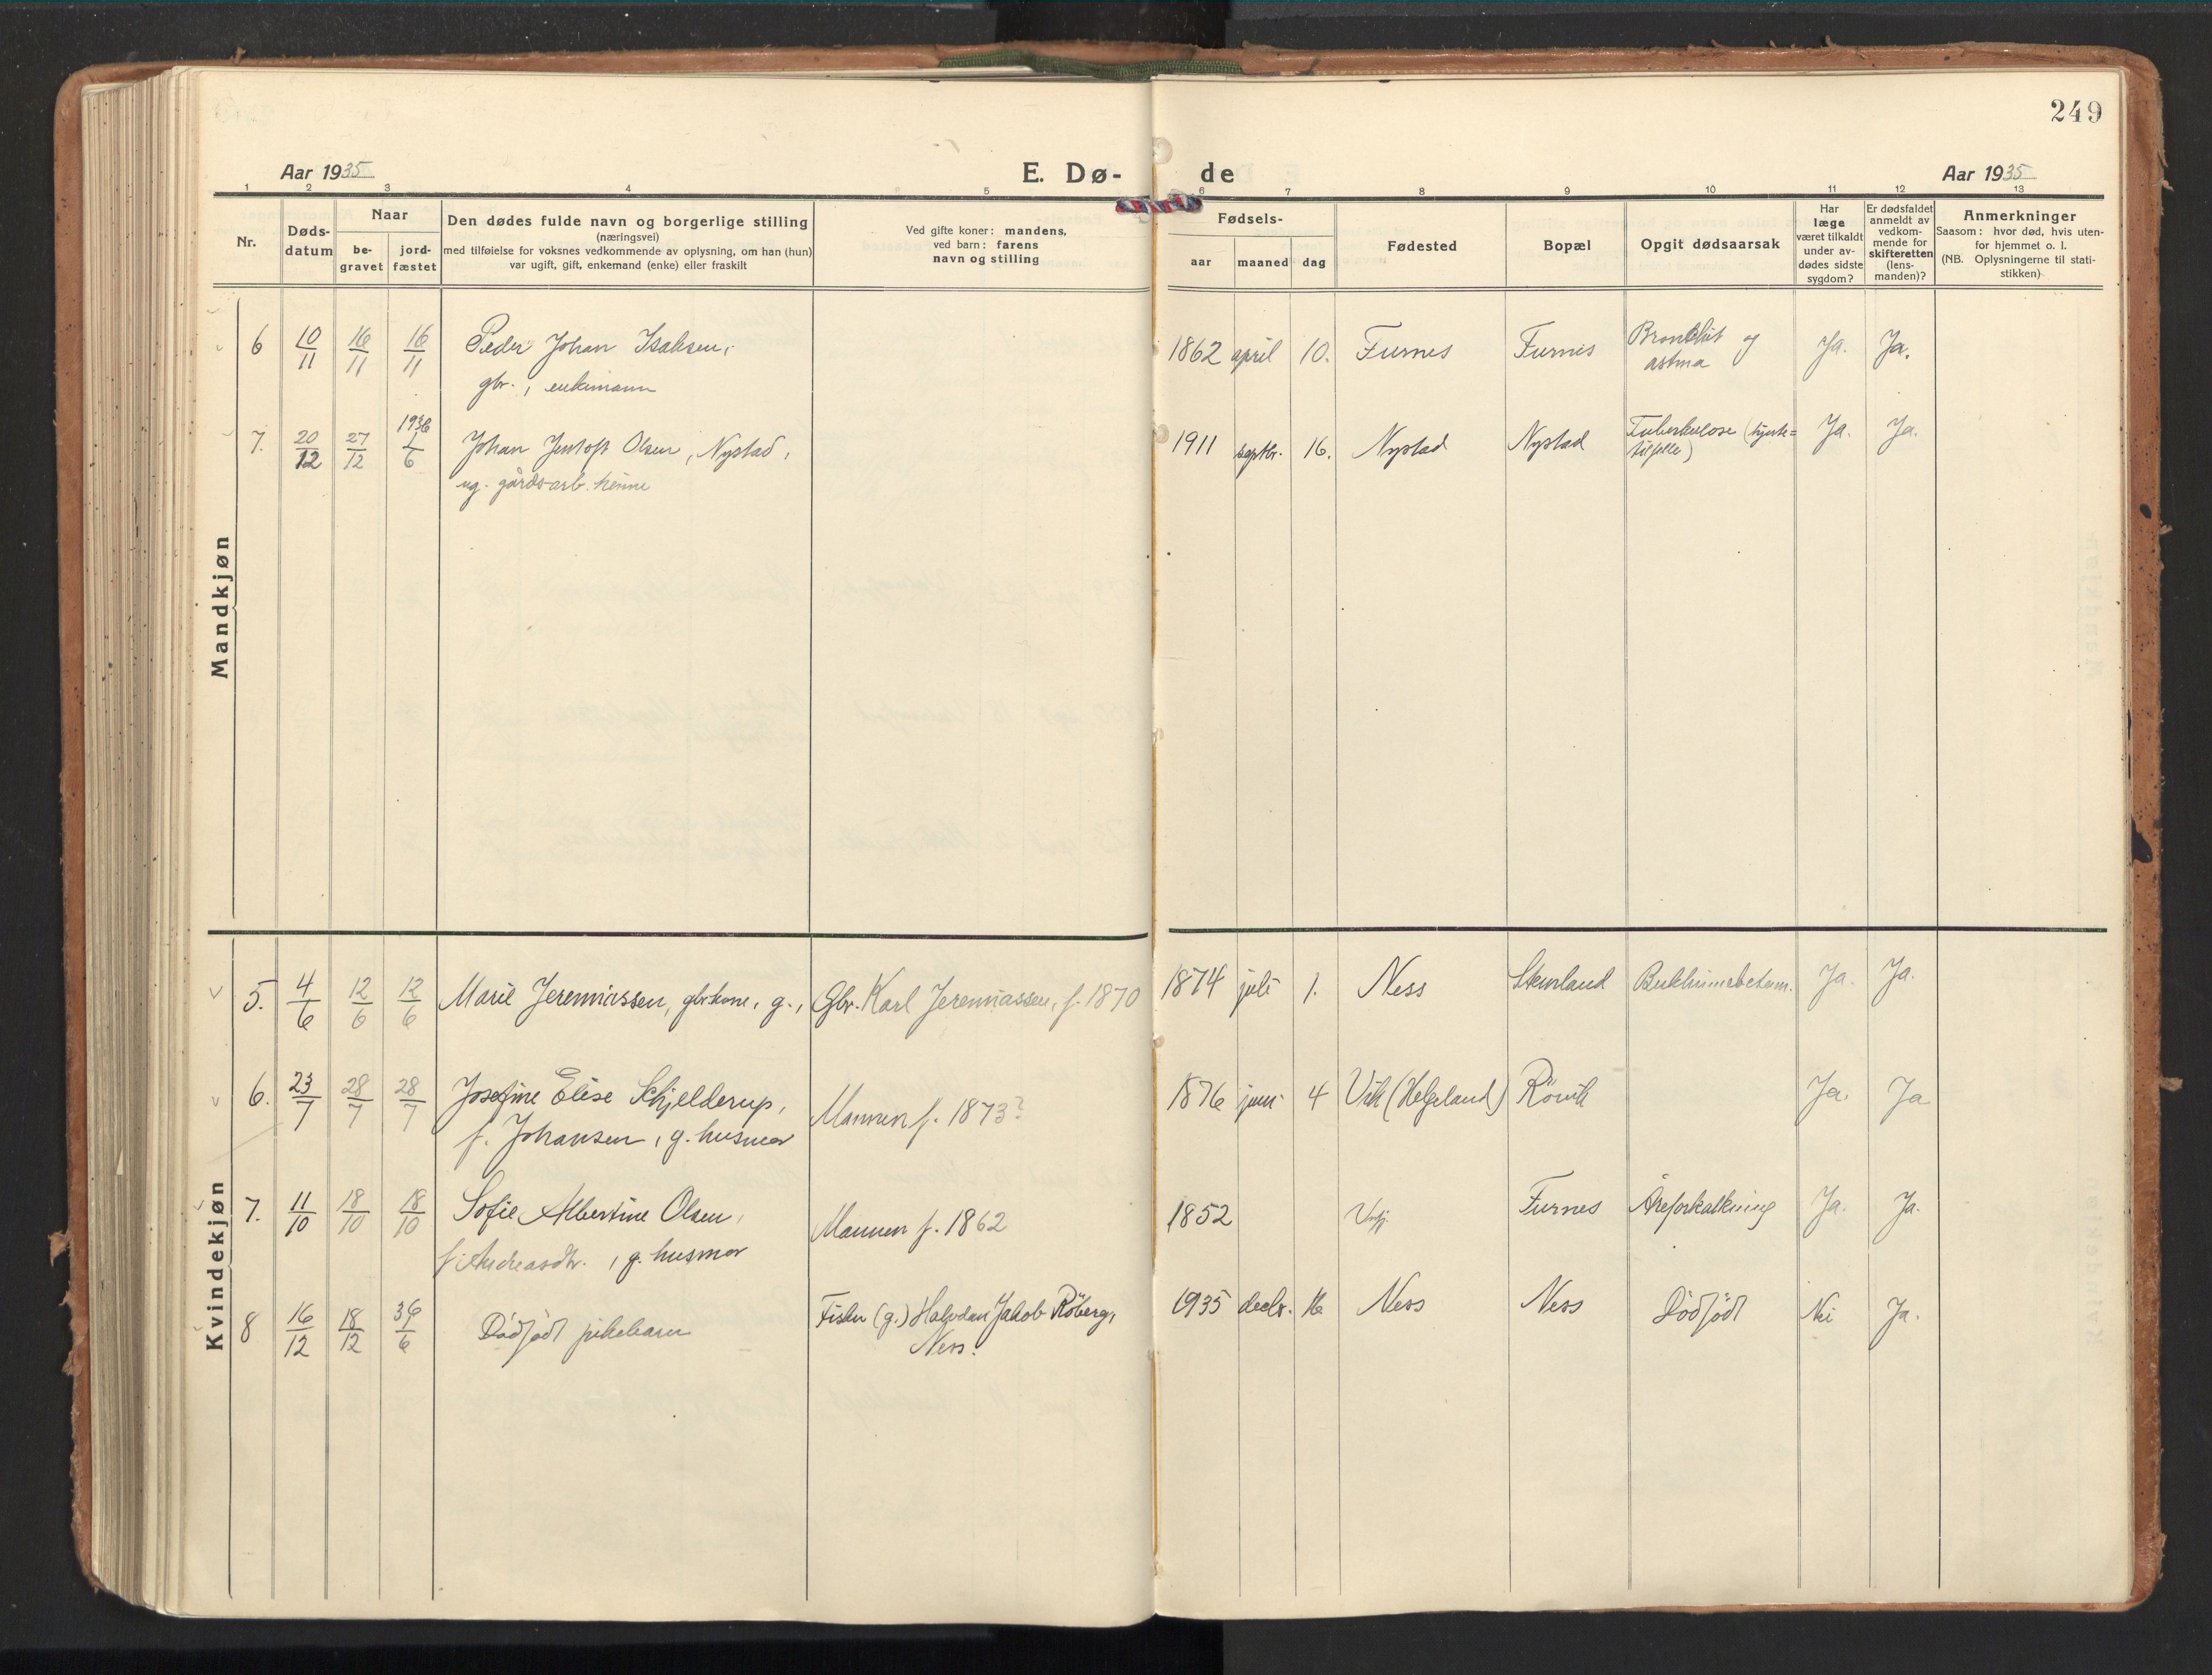 249
Aar 1935
E. Dø-
de
Aar 1935
1 2 3 4 5 6 7 8 9 10 11 12 13
Nr.
Døds-
datum
Naar
be-
gravet
jord-
fæstet
Den dødes fulde navn og borgerlige stilling
(næringsvei)
med tilføielse for voksnes vedkommende av oplysning, om han (hun)
var ugift, gift, enkemand (enke) eller fraskilt
Ved gifte koner: mandens,
ved barn: farens
navn og stilling
Fødsels-
aar maaned dag
Fødested
Bopæl
Opgit dødsaarsak
Har
læge
været tilkaldt
under av-
dødes sidste
sygdom?
Er dødsfaldet
anmeldt av
vedkom-
mende for
skifteretten
(lens-
manden)?
Anmerkninger
Saasom: hvor død, hvis uten-
for hjemmet o. l.
(NB. Oplysningerne til stati-
stikken)
Mandkjøn
6 10/11 16/11 16/11 Peder Johan Isaksen, 1862 april 10. Furnes Furnes Bronchit og Ja. Ja.
gbr., enkemann astma
1936
7. 20/12 27/12 1/6 Johan Jentoft Olsen, Nystad, 1911 septbr. 16. Nystad Nystad Tuberkulose Ja. Ja.
ug. gårdsarb. tilfelle)
Kvindekjøn
5. 4/6 12/6 12/6 Marie Jeremiassen, gbr.kone, g., Gbr. Karl Jeremiassen, f. 1870 1874 juli 1. Ness Ja. Ja.
6. 23/7 28/7 28/7 Josefine Elise Schjelderup, Mannen f. 1873? 1876 juni 4 Vik (Helgeland) Rörvik Ja. Ja
f. Johansen, g. husmor
7. 11/10 18/10 18/10 Sofie Albertine Olsen, Mannen f. 1862 1852 Furnes Åreforkalkning Ja. Ja.
f. Andreasdtr., g. husmor
8 16/12 18/12 36 1/6 Dödfödt pikebarn Fisker (g.) Halvdan Jakob Röberg, 1935 decbr. 16 Ness Ness Dödfödt Nei Ja.
Ness.